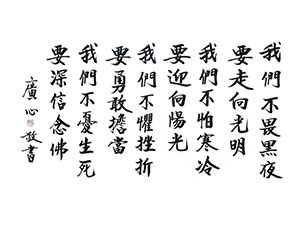 我們不畏黑夜
要走向光明
我們不怕寒冷
要迎向陽光
我們不懼挫折
要勇敢擔當
我們不憂生死
要深信念佛
廣心敬書